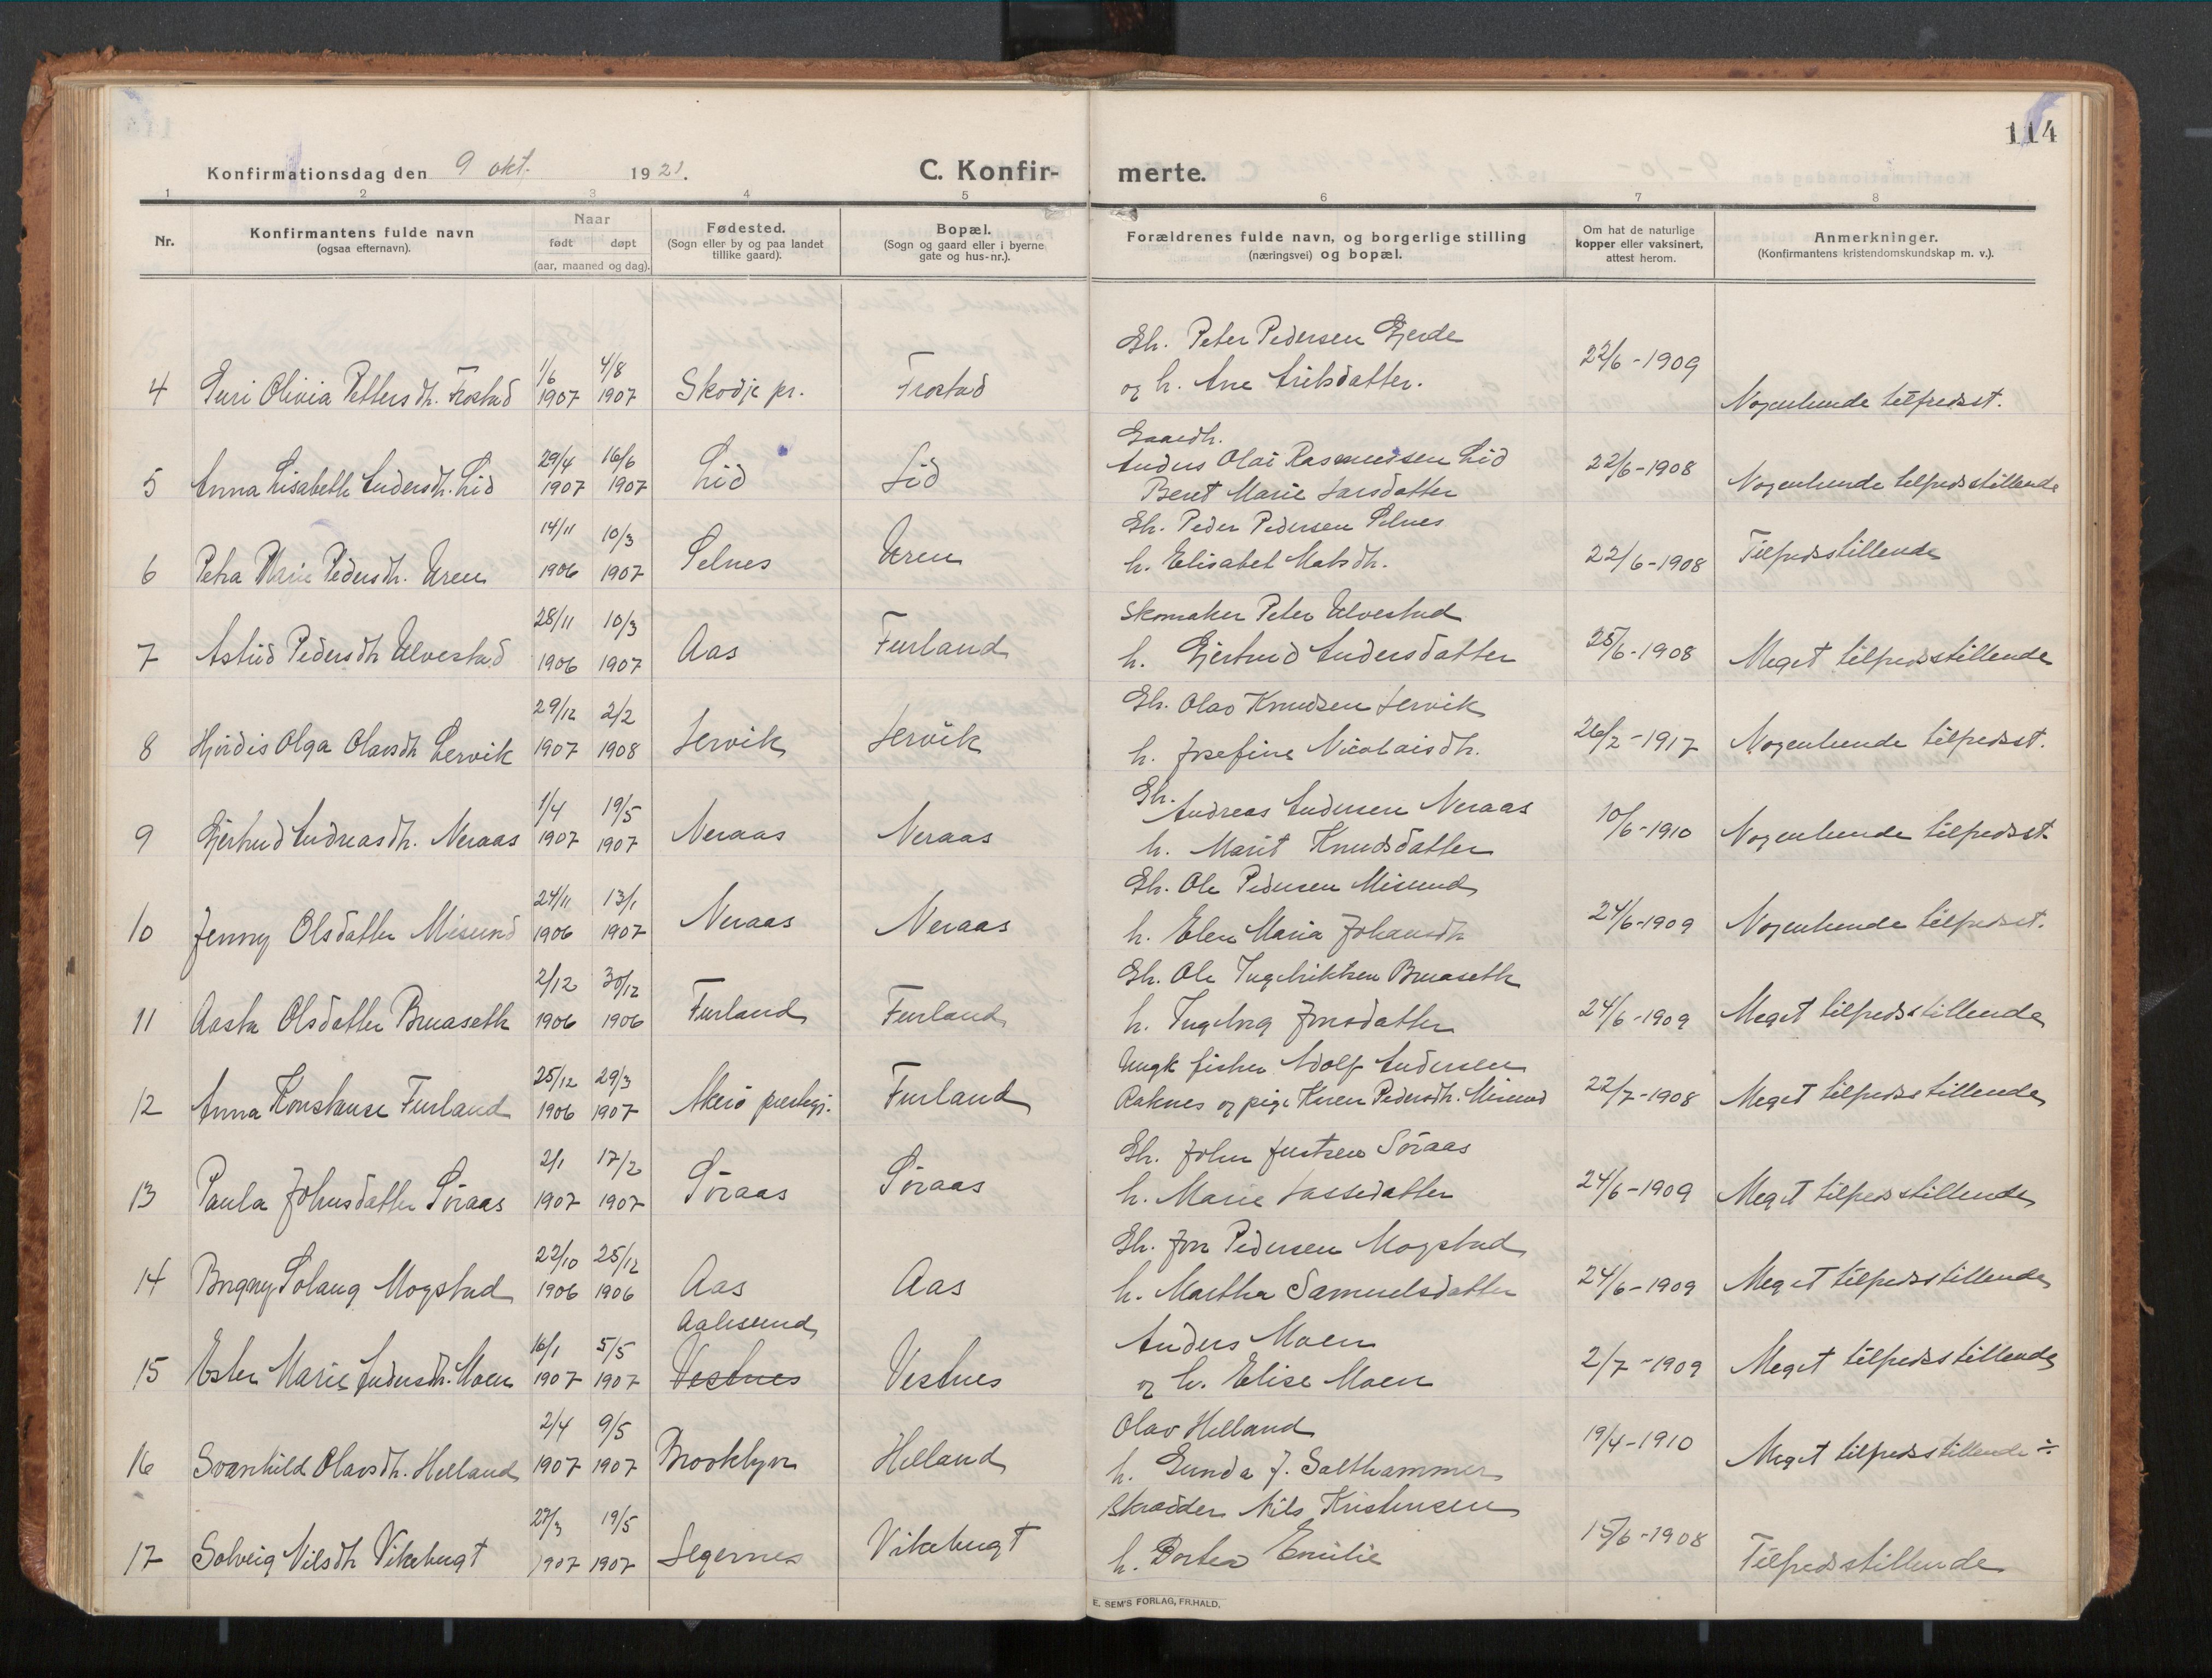 114
Konfirmationsdag den 9 okt. 1921.
C. Konfirmerte.
1 2 3 4 5 6 7 8
Nr.
Konfirmantens fulde navn
(ogsaa efternavn).
Naar
født døpt
(aar, maaned og dag).
Fødested.
(Sogn eller by og paa landet
tillike gaard).
Bopæl.
(Sogn og gaard eller i byerne
gate og hus-nr.).
Forældrenes fulde navn, og borgerlige stilling
(næringsvei) og bopæl.
Om hat de naturlige
kopper eller vaksinert,
attest herom.
Anmerkninger.
(Konfirmantens kristendomskundskap m. v.).
1/6 4/8 Gh. Peter Pedersen Gjerde 22/6-1909
4 Guri Olivia Petters dh. Frostad 1907 1907 Skodje pr. Frostad og h. Ane Eriksdatter. Nogenlunde tilfredsst.
Gaardh.
29/4 16/6 Anders Olai Rasmussen Lid 22/6-1908
5 Anna Lisabeth Andersdh. Lid 1907 1907 Lid Lid Beret Marie Larsdatter Nogenlunde tilfredsstillende
14/11 10/3 Gh. Peder Pedersen Selnes
6 Petra Marie Pedersdh. Uren 1906 1907 Selnes Uren h. Elisabet Matsdh. 22/6-1908 Tilfredsstillende
28/11 10/3 Skomaker Peter Ulvestad
7 Astrid Pedersdh Ulvestad 1906 1907 Aas Furland h. Gjertrud Andersdatter 25/6-1908 Meget tilfredsstillende
29/12 2/2 Gh. Olav Knudsen Lervik
8 Hjördis Olga Olavsdh Lervik 1907 1908 Lervik Lervik h. Josefine Nicolaisdh. 26/2-1917 Nogenlunde tilfredsst.
Gh.
1/4 19/5 Andreas Andersen Neraas
9 Gjertrud Andreasdh. Neraas 1907 1907 Neraas Neraas h. Marit Knudsdatter 10/6-1910 Nogenlunde tilfredsst.
24/11 13/1 Gh. Ole Pedersen Misund
10 Jenny Olsdatter Misund 1906 1907 Neraas Neraas h. Elen Maria Johansdh 24/6-1909 Nogenlunde tilfredsst.
2/12 30/12 Gh. Ole Ingebriktsen Bruaseth
11 Aasta Olsdatter Bruaseth 1906 1906 Furland Furland h. Ingeborg Jonsdatter 24/6-1909 Meget tilfredsstillende
25/12 29/3 Ungk. fisker Adolf Andersen
12 Anna Konstanse Furland 1906 1907 Akerö prestegj. Furland Raknes og pige Karen Pedersdh. Misund 22/7-1908 Meget tilfredsstillende
2/1 17/2 Gh. John Justsen Söraas
13 Paula Johnsdatter Söraas 1907 1907 Söraas Söraas h. Marie Lassedatter 24/6-1909 Meget tilfredsstillende
22/10 25/12 Gh. Jon Pedersen Mogstad
14 Borgny Solaug Mogstad 1906 1906 Aas Aas h. Martha Samuelsdatter 24/6-1909 Meget tilfredsstillende
16/1 5/5 Aalesund Anders Moen
15 Ester Marie Andersdh. Moen 1907 1907 Vestnes Vestnes og h. Elise Moen 2/7-1909 Meget tilfredsstillende
2/4 9/5 Olav Helland
16 Svanhild Olavsdh. Helland 1907 1907 Brooklyn Helland h. Gunda J. Salthammer 19/4-1910 Meget tilfredsstillende ÷
27/3 19/5 Skrædder Nils Kristensen
17 Solveig Nilsdh Vikebugt 1907 1907 Legernes Vikebugt h. Dortea Emilie 15/6-1908 Tilfredsstillende
E. SEM'S FORLAG, FR.HALD.